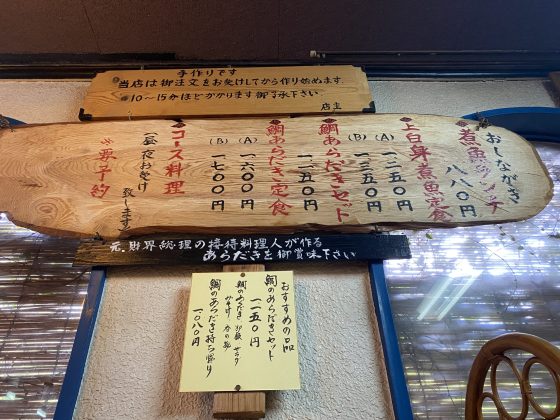 手作りです
当店は御注文をお受けしてから作り始めます。
※10〜15分ほどかかります御了承下さい。
店主
おしながき
煮魚ランチ
八八〇円
上白身煮魚定食
(A) 一二五〇円
(B) 一三五〇円
鯛あらだきセット
一一五〇円
鯛あらだき定食
(A) 一六〇〇円
(B) 一七〇〇円
コース料理
(昼・夜お受け致します)
※要予約
元.財界総理の接待料理人が作る
あらだきを御賞味下さい
おすすめの品
鯛のあらだきセット
一一五〇円
鯛のあらだき 御飯
みそ汁
鯛のあらだき持ち帰り
一〇八〇円